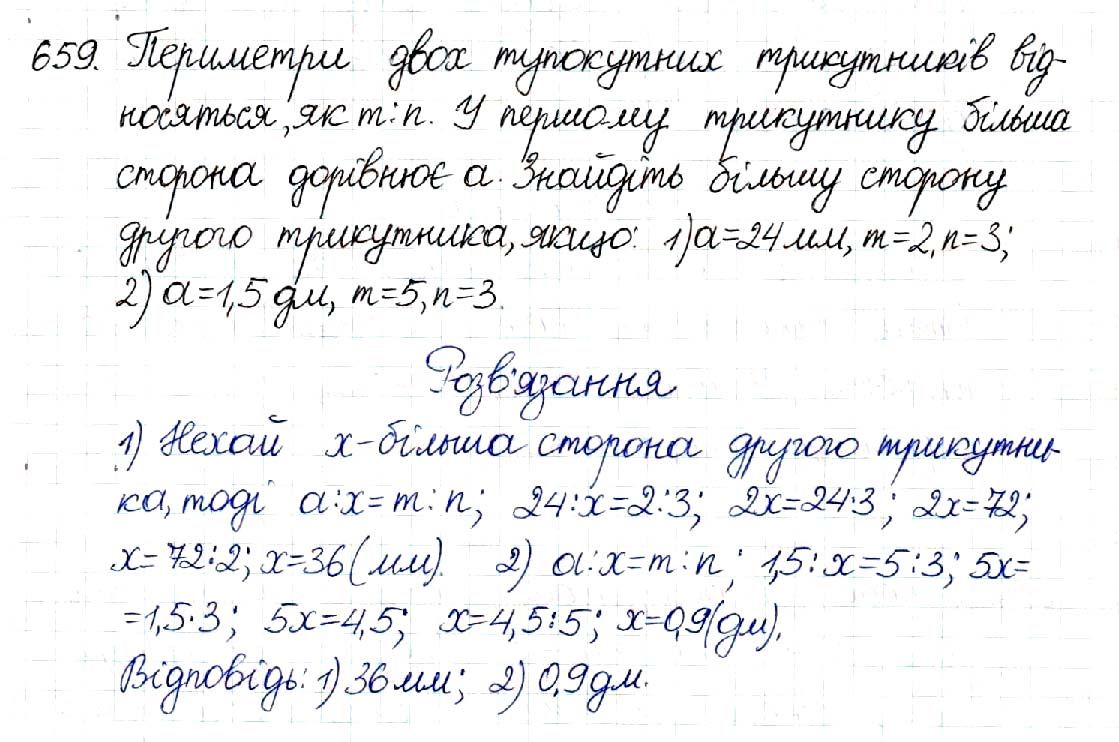 659. Периметри двох тупокутних трикутників від-
носяться, як m:n. У першому трикутнику більша
сторона дорівнює a. Знайдіть більшу сторону
другого трикутника, якщо: 1) a=24 мм, m=2, n=3;
2) a=1,5 дм, m=5, n=3.
Розв'язання
1) Нехай x-більша сторона другого трикутни-
ка, тоді a:x=m:n; 24:x=2:3; 2x=24·3; 2x=72;
x=72:2; x=36(мм). 2) a:x=m:n; 1,5:x=5:3; 5x=
=1,5·3; 5x=4,5; x=4,5:5; x=0,9(дм).
Відповідь: 1) 36 мм; 2) 0,9 дм.